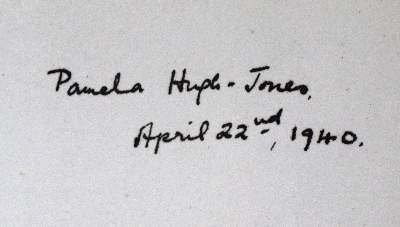 Pamela Hugh-Jones,
April 22nd, 1940.